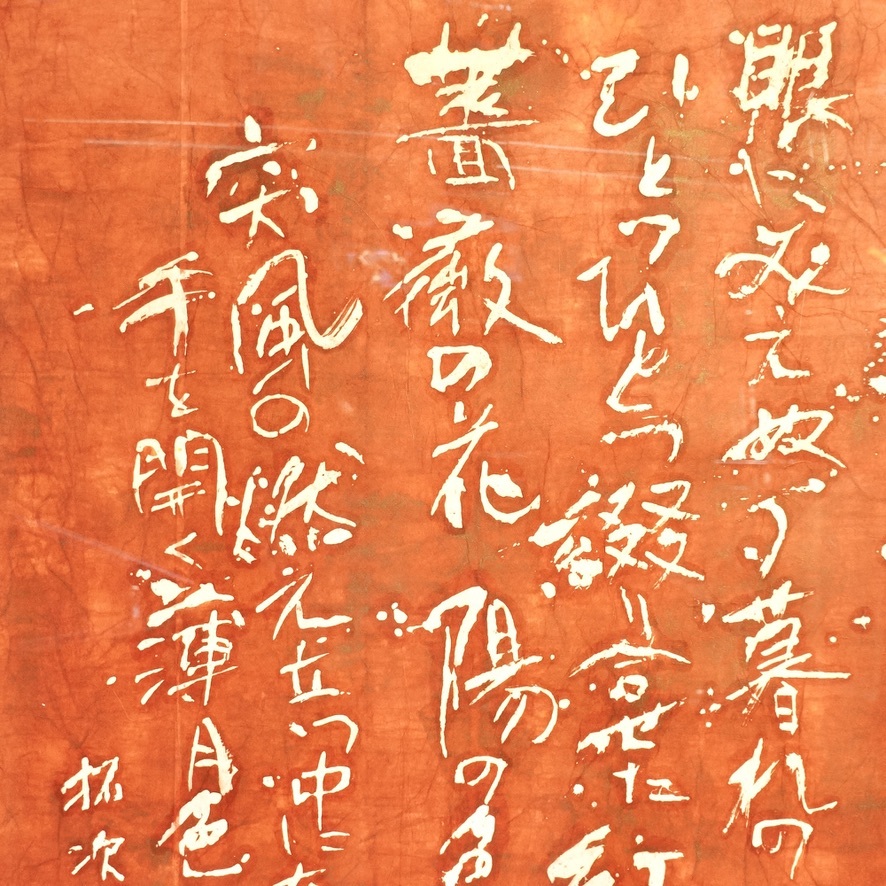 眼に えぬる暮れの
ひとつひとつ綴り合せた紅
薔薇の花 陽の
突風の燃え立つ中に
手を開く薄月色
拓次